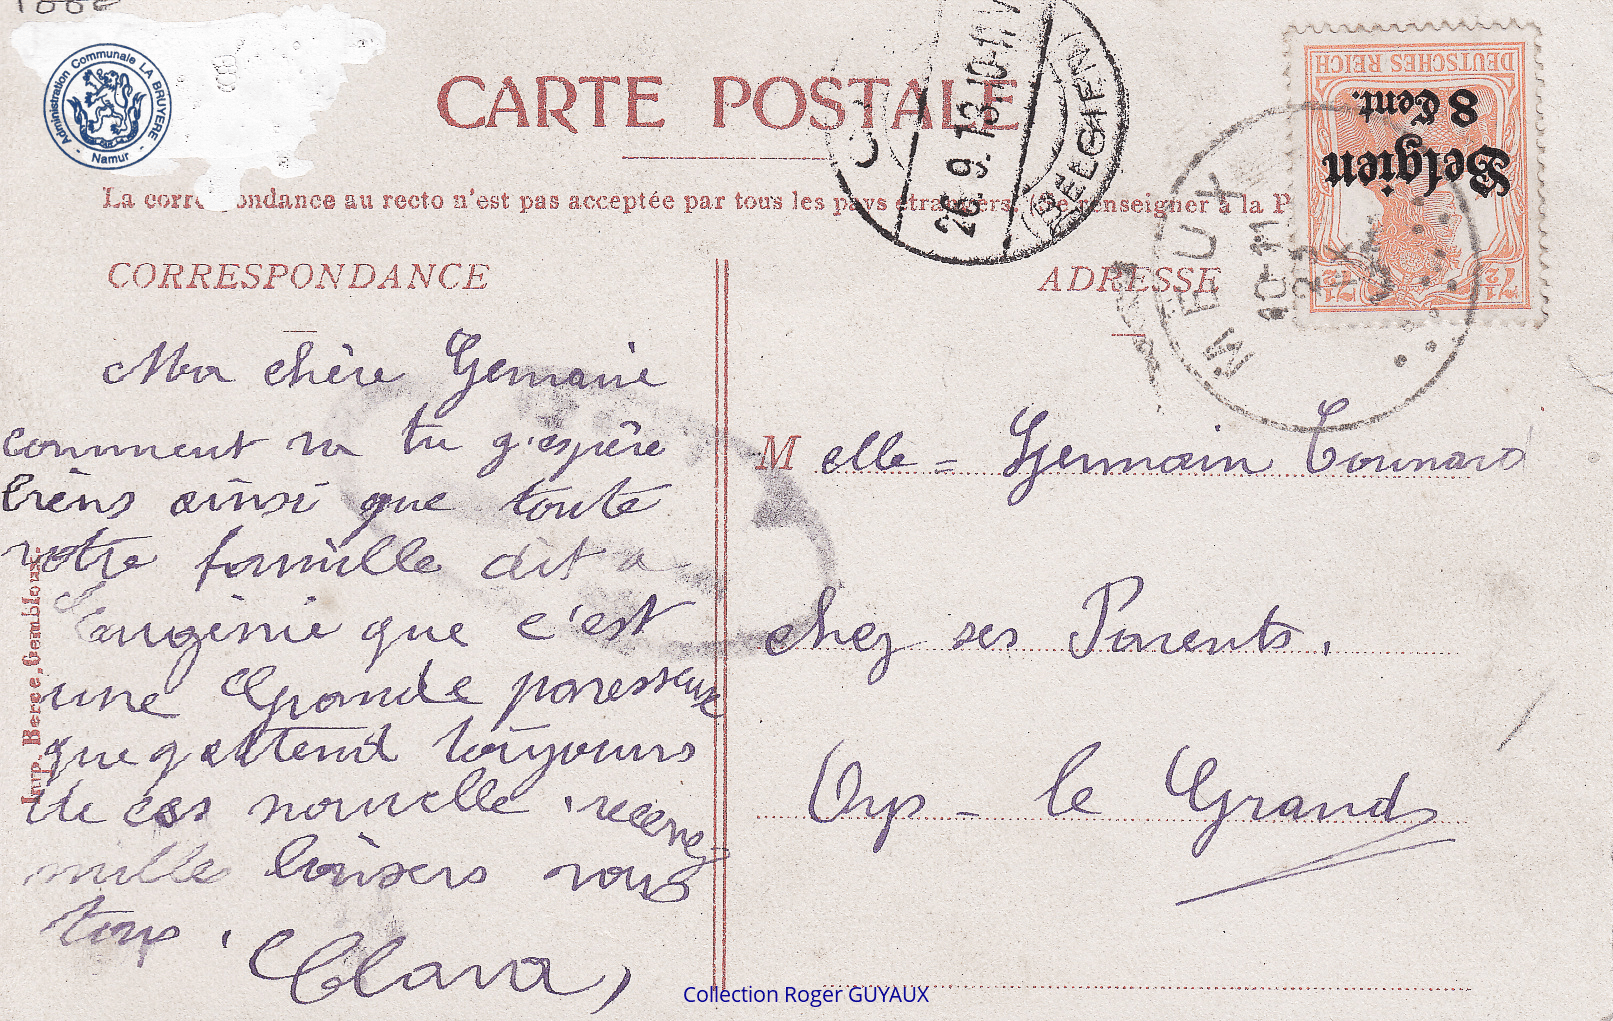 Administration Communale LA BRUYERE
- Namur -
CARTE POSTALE
La corre ondance au recto n'est pas acceptée par tous les pays étrangers. Se renseigner à la P
CORRESPONDANCE
ADRESSE
DEUTSCHES REICH
Belgien
8 Cent.
7½ 7½
26.9.18.10-11V
(BELGIEN)
MEUX
10-11
22
IX
Ma chère Germaine
comment va tu j'espère
biens ainsi que toute
votre famille dit a
Eaugenie que c'est
une Grande paresseuse
que j attend toujours
de ces nouvelle recevez
mille baisers vous
tous.
Clara,
M elle = Germain Tournard
chez ses Parents.
Orp - le Grand
Imp. Berce, Gembloux.
Collection Roger GUYAUX